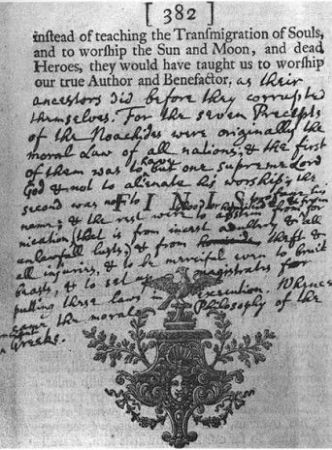 [ 382 ]
instead of teaching the Transmigration of Souls,
and to worship the Sun and Moon, and dead
Heroes, they would have taught us to worship
our true Author and Benefactor, as their
ancestors did before they corrupted
themselves. For the seven Precepts
of the Noachides were originally the
moral Law of all nations; & the first
of them was to have but one supreme Lord
God & not to alienate his worship; the
second was not to profane his
FINIS
name; & the rest were to abstain from
fornication (that is from incest adultery & all
unlawfull lusts) & from theft &
all injuries, & to be mercifull even to bruit
beasts, & to set up magistrates for
putting these laws in execution. Whence
came the moral Philosophy of the
Greeks.